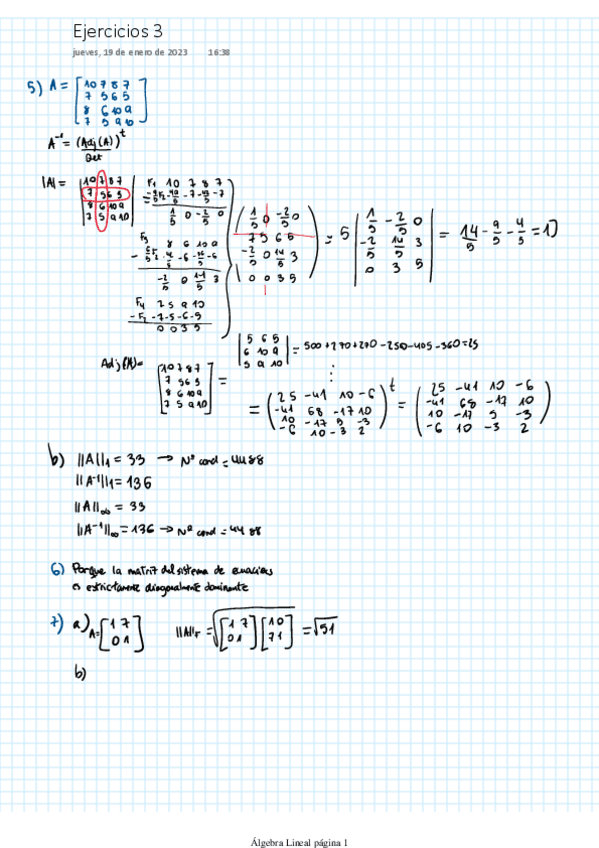 Ejercicios 3
jueves, 19 de enero de 2023 16:38
5) A = [10 7 8 7
7 5 6 5
8 6 10 9
7 5 9 10]
A⁻¹ = (Adj(A))ᵗ
Det
|A| = |10 7 8 7
7 5 6 5
8 6 10 9
7 5 9 10|
F1 10 7 8 7
1/5 0 -2/5 0
F3 8 6 10 9
-2/5 0 14/5 3
F4 7 5 9 10
- F2 -7 -5 -6 -5
0 0 3 5
(1/5 0 -2/5 0
7 5 6 5
-2/5 0 14/5 3
0 0 3 5)
= 5 |1/5 -2/5 0
-2/5 14/5 3
0 3 5| = 14/5 - 9/5 - 4/5 = 1)
Adj(A) = [10 7 8 7
7 5 6 5
8 6 10 9
7 5 9 10] =
|5 6 5
6 10 9
5 9 10| = 500+270+270-250-405-360=25
= (25 -41 10 -6
-41 68 -17 10
10 -17 5 -3
-6 10 -3 2)ᵗ = (25 -41 10 -6
-41 68 -17 10
10 -17 5 -3
-6 10 -3 2)
b) ||A||₁ = 33 → Nº cond = 4488
||A⁻¹||₁ = 136
||A||∞ = 33
||A⁻¹||∞ = 136 → Nº cond = 4488
6) Porque la matriz del sistema de ecuaciones
es estrictamente diagonalmente dominante
7) a) A = [1 7
0 1] ||A||F = √[1 7
0 1][1 0
7 1] = √51
b)
Álgebra Lineal página 1